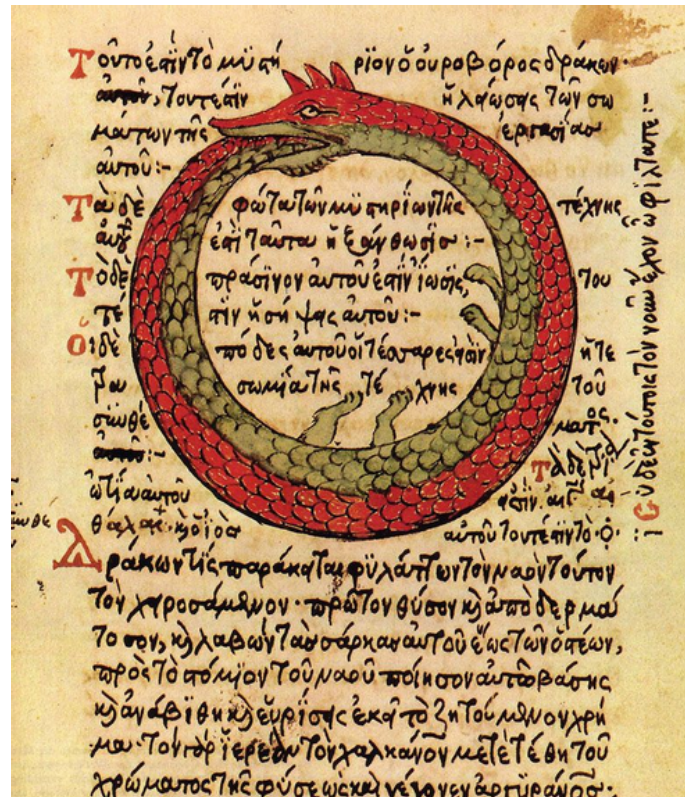 Τοῦτο ἐστὶν τὸ μυστήριον ὁ οὐροβόρος δράκων·
τουτέστιν ἡ λείωσις τῶν σω
μάτων τῆς ἐργασίας
αὐτοῦ:-
Τὰ δὲ φῶτα τῶν μυστηρίων τῆς τέχνης
ἐστὶ ταῦτα ἡ ξάνθωσις:-
Τὸ δὲ πράσινον αὐτοῦ ἐστὶν ἴωσις, του
τέστιν ἡ σήψις αὐτοῦ:-
Οἱ δὲ πόδες αὐτοῦ οἱ τέσσαρες ἐστὶν ἡ τε
σωμία τῆς τέχνης τοῦ
αὐτοῦ τουτέστιν τὸ
Δράκων τίς παράκειται φυλάττων τὸν ναὸν τοῦτον
τὸν χειροσάμενον· πρῶτον θύσον κ̀ ἀποδερμά
τοσον, κ̀ λαβὼν τὰς σάρκας αὐτοῦ ἕως τῶν ὀστέων,
πρὸς τὸ στόμιον τοῦ ναοῦ ποίησον αὐτῶ βάσης
κ̀ ἀνάβϊθη κ̀ εὑρίσης ἐκεῖ τὸ ζητούμενον χρῆ
μα· τὸν γὰρ ἱερέα τὸν χαλκάνον μετετέθη τοῦ
χρώματος τῆς φύσεως καὶ γέγονεν ἀργυράνος·
τὸν νοῦν ἔχον ὦ φίλτατε:-